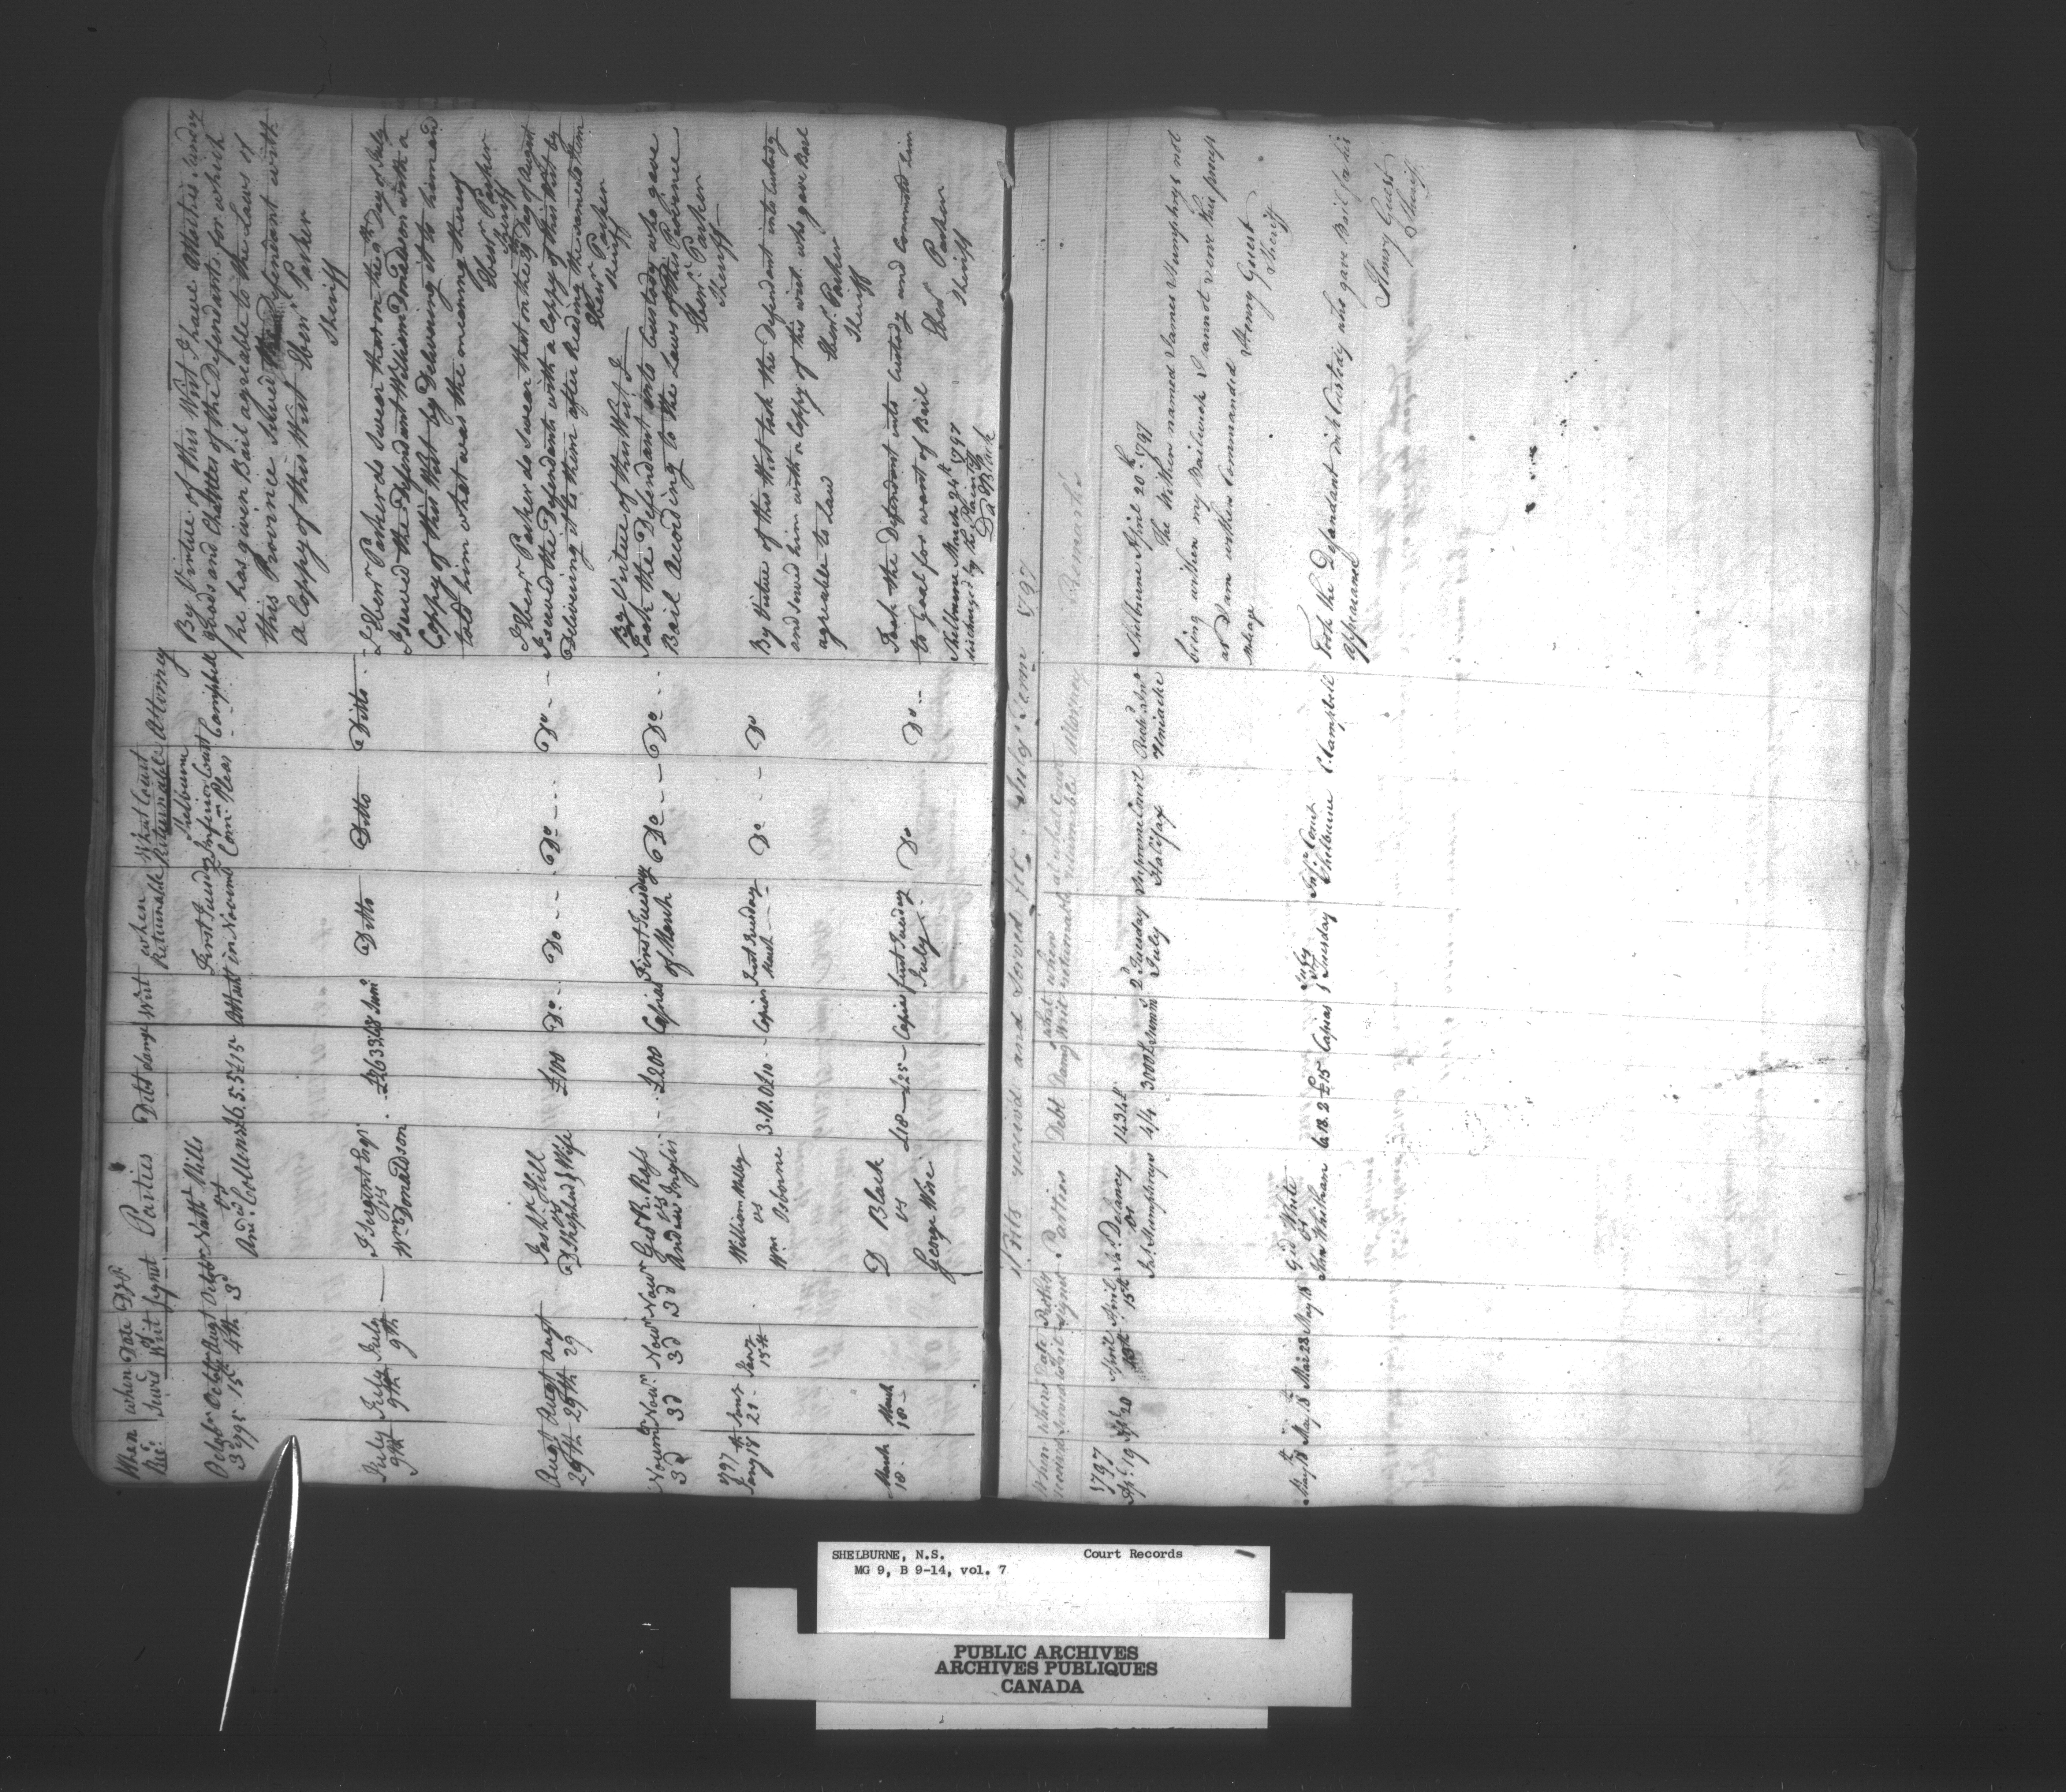 When Rec.d | when Serv'd | Date of Writ | Parties | Debt | damge | Writ | when Returnable | What Court Returnable | Attorney
October 3d 1795 | October 15th | Augt 4th | Octobr 3d | Nathl Mills
vs
Andw Collens | £6.5.5 | £15 | Attact | First Tuesday in Novemb | Shelburne Inferior Court Comn Pleas | Campbell
By Virtue of this Writ I have Attatched sundery
goods and Chattles of the Defendants for which
he has given Bail agreable to the Laws of
this Province Served the Defendant with
a Coppy of this Writ Ebenr Parker
Sheriff
July 9th | July 9th | July 9th | —
I Sergent Esqr
vs
Wm Donaldson | Summ | Ditto | Ditto | Ditto
I Ebenr Parker do Swear that on the 9th day of July
I served the Defendant William Donaldson with a
Coppy of this Writ by Delivering it to him and
told him what was the meaning thereof
Ebenr Parker
Sheriff
Augt 29th | Augt 29th | Augt 29
Jas Hill
vs
D Shepherd & Wife | £100 | Do | Do | Do | Do
I Ebenr Parker do Swear that on the 29 day of August
I served the Defendants with a Coppy of this Writ by
Delivering it to them after Reading the same to them
Ebenr Parker
Sheriff
Novemr 3d | Novr 3d | Novr 3d | Novr 3d
Geo R. Ross
vs
Andrew Inglis | £200 | Capias | First Tuesday of March | Do | Do
By Virtue of this Writ I
Took the Defendant into Custody who gave
Bail According to the Laws of this Province
Ebenr Parker
Sheriff
1797
Jany 18th | 21 | Jany 15th
William
vs
Wm Osborne | 3.10.0 | £10 | Capias | First Tuesday March | Do | Do
By Virtue of this Writ took the Defendant into Custody
and served him with a Coppy of this writ who gave Bail
agreable to Law
Ebenr Parker
Sheriff
March 18 | March 18
D Black
vs
George Wise | £18 | £25 | Capias | first Tuesday July | Do | Do
Took the Defendant into Custody and Commited him
to Goal for want of Bail
Ebenr Parker
Sheriff
Shelburne March 24th 1797
discharged by the Plaintif
D Black
Writs received and Served for July Term 1797
When received | When Served | Date Writ | Parties | Debt | Damg | what Writ | when returnable | at what Court returnable | Attorney | Remarks
1797
Apl 19 | Apl 20 | April | April 15th
Delancy
vs
Js Humphreys | 4/4 | 3000£ | Summs | 2d Tuesday July | Supreme Court Halifax | Richd Jno Uniacke
Shelburne April 20th 1797
The within named James Humphrys not
being within my Bailiwick I cannot serve this process
as I am within Commanded
Henry Guest
Sheriff
May 18th | May 18 | Mar 28 | May 18
Gid White
vs
John Whitham | £15 | Capias | 1st Tuesday July | Infr Court Shelburne | C. Campbell
Took the Defendant into Custody who gave Bail for his
appearance
Henry Guest
Sheriff
SHELBURNE, N.S. Court Records
MG 9, B 9-14, vol. 7
PUBLIC ARCHIVES
ARCHIVES PUBLIQUES
CANADA